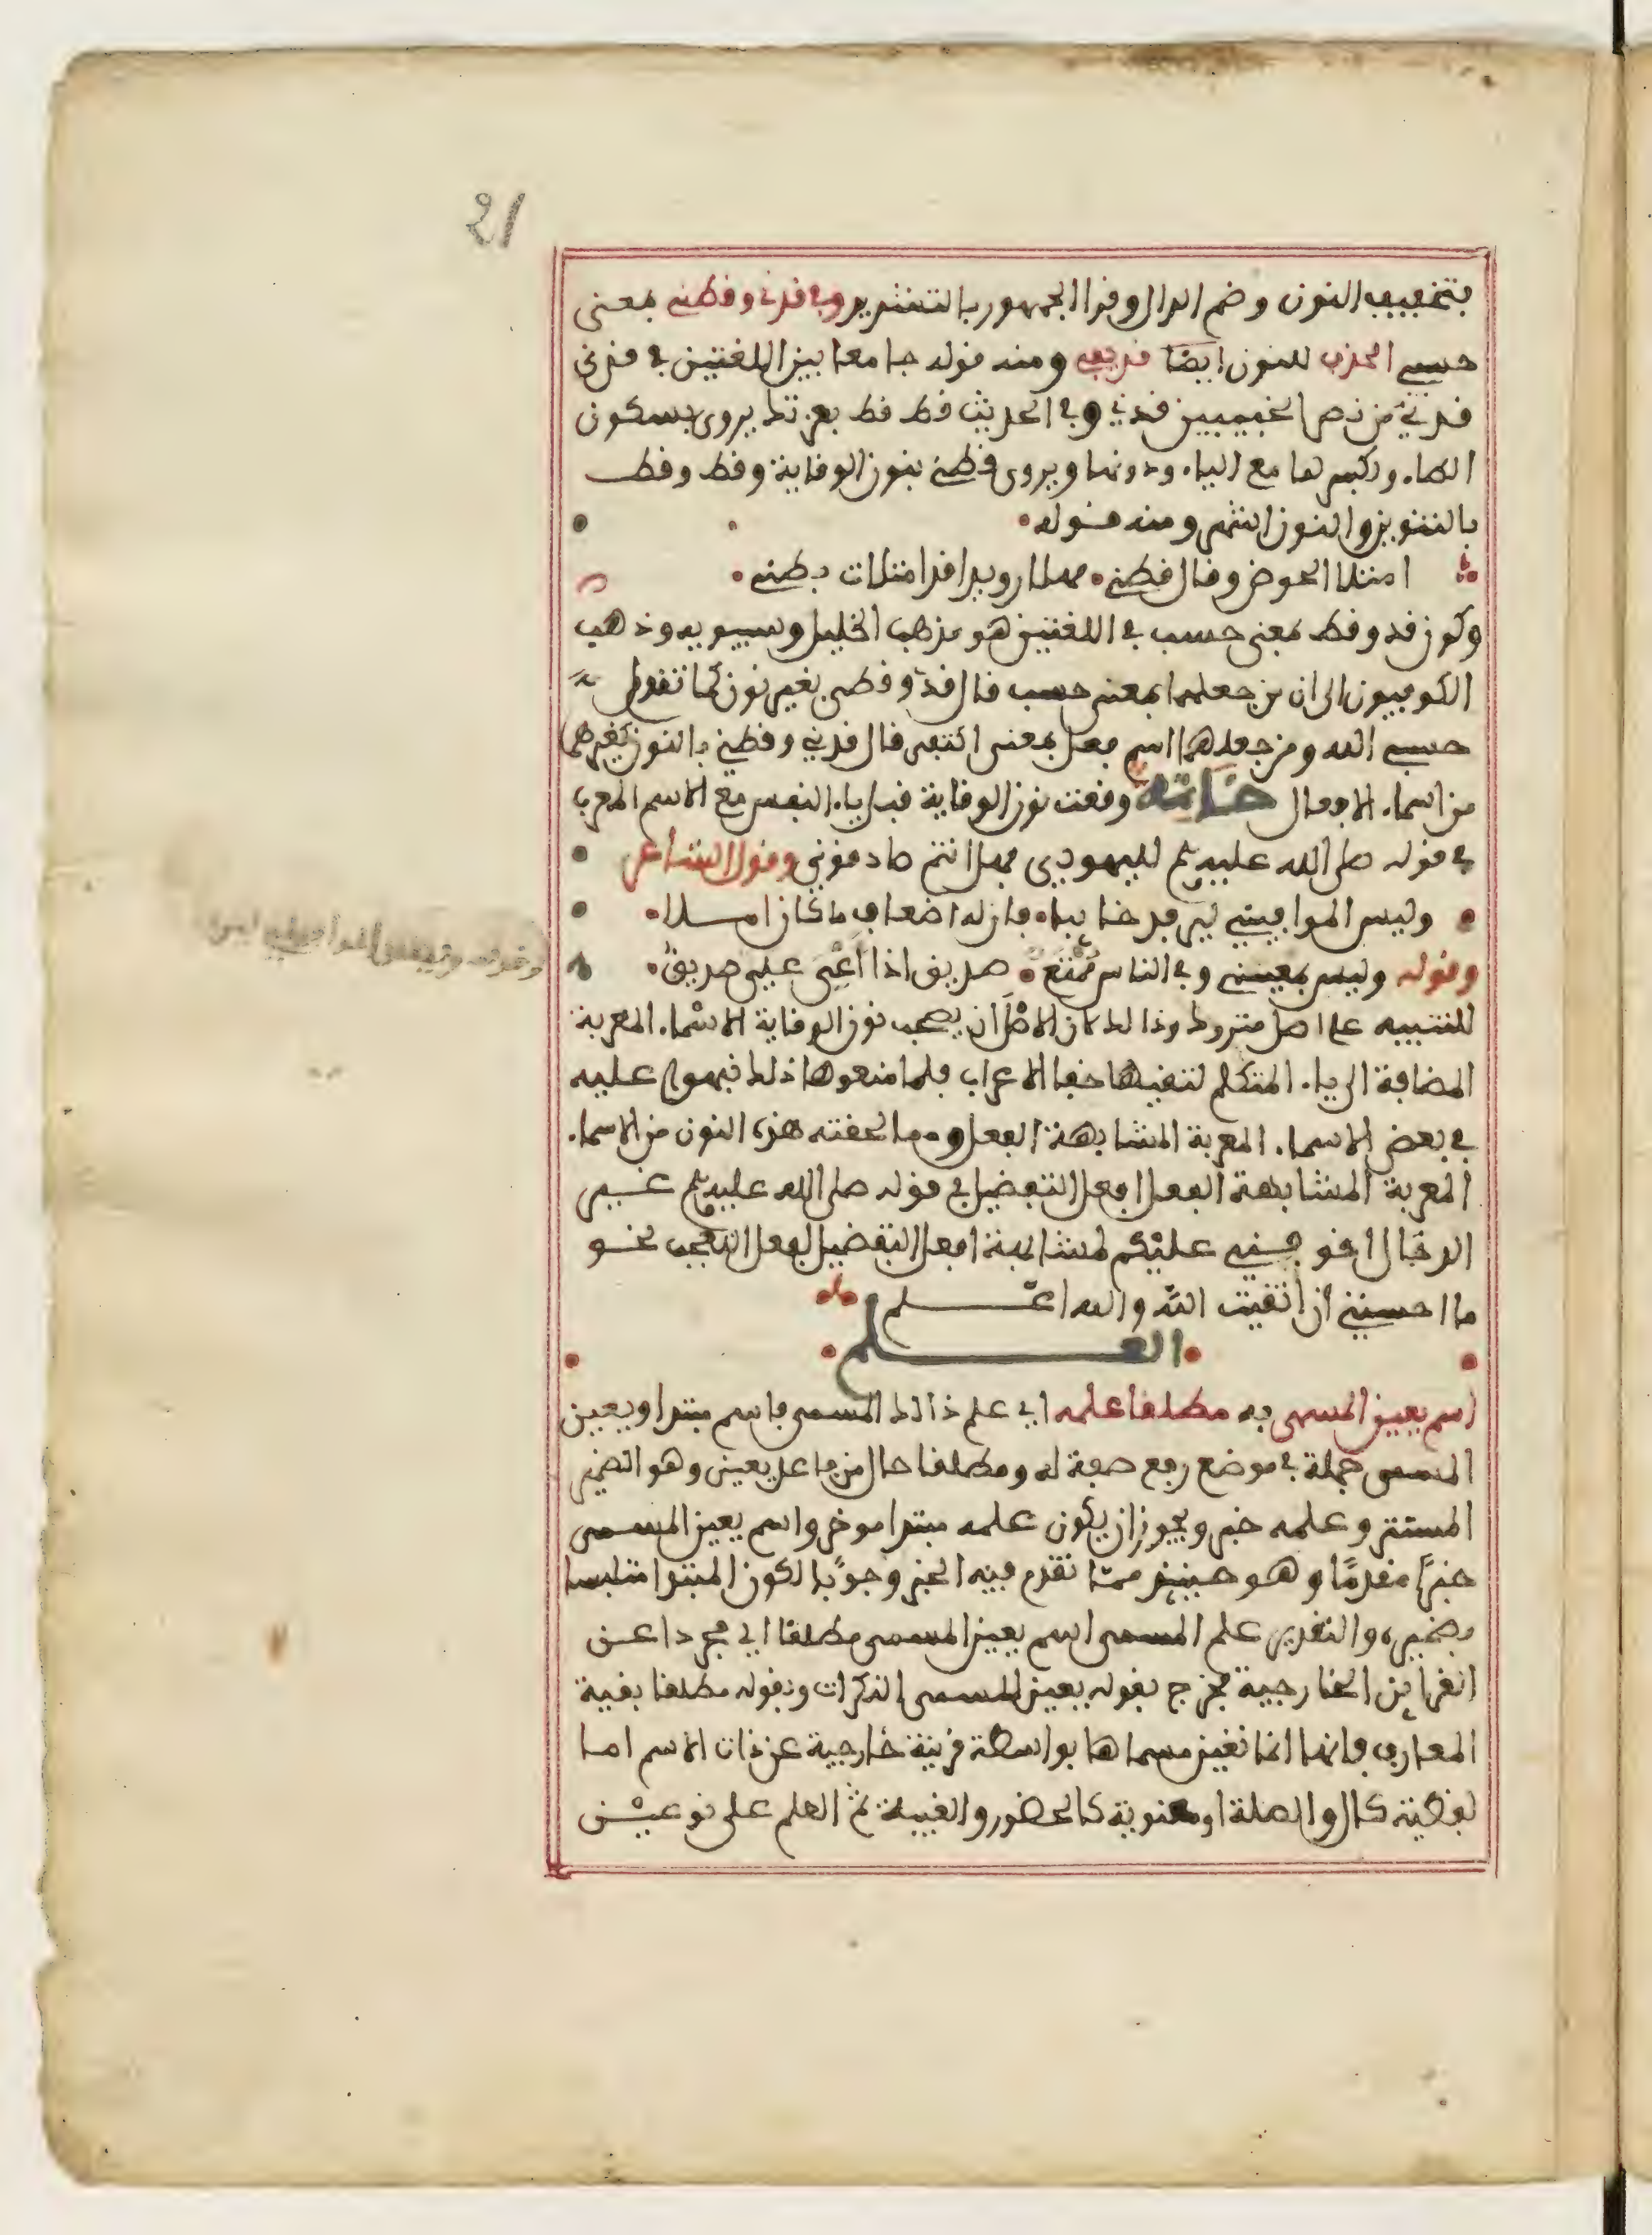 21
بتخفيف النون وضم الدال وقرا الجمهور بالتشديد وفي قدني وقطني بمعنى
حسبي الحذف للنون ايضا قد يفي ومنه قوله جامعا بين اللغتين في قدني
قدني من نصر الخبيبين قدي وفي الحديث قط قط بعزتك يروى بسكون
الطاء وكسرها مع الياء ودونها ويروى قطني بنون الوقاية وقط وقط
بالتنوين والنون اشهر ومنه قوله
امتلا الحوض وقال قطني مهلا رويدا قد امتلات بطني
وكون قد وقط بمعنى حسب في اللغتين هو مذهب الخليل وسيبويه وذهب
الكوفيون الى ان من جعلهما بمعنى حسب قال قدي وقطي بغير نون كما تقول
حسبي الله ومن جعلهما اسم فعل بمعنى اكتفى قال قدني وقطني بالنون كغيرهما
من اسماء الافعال خاتمة وقعت نون الوقاية قبل ياء النفس مع الاسم المعرب
في قوله صلى الله عليه وسلم لليهود فهل انتم صادقوني وقول الشاعر
وليس الموافيني ليرفد خائبا فان له اضعاف ما كان املا
وقوله وليس بمعييني وفي الناس ممتع صديق اذا اعيى علي صديق
للتنبيه على اصل متروك وذالك لان الاصل ان يصحب نون الوقاية الاسماء المعربة
المضافة الى ياء المتكلم لتقيها خفا الاعراب فلما منعوها ذلك نبهوا عليه
في بعض الاسماء المعربة المشابهة الفعل ومما لحقته هذه النون من الاسماء
المعربة المشابهة الفعل افعل التفضيل في قوله صلى الله عليه وسلم غير
الدجال اخوفني عليكم لمشابهة افعل التفضيل لفعل التعجب نحو
ما احسنني ان اتقيت الله والله اعلم
العلم
اسم يعين المسمى به مطلقا علمه اي علم ذالك المسمى فاسم مبتدا ويعين
المسمى جملة في موضع رفع صفة له ومطلقا حال من فاعل يعين وهو الضمير
المستتر وعلمه خبر ويجوز ان يكون علمه مبتدا موخر واسم يعين المسمى
خبرا مقدما وهو حينئذ مما تقدم فيه الخبر وجوبا لكون المبتدا متلبسا
بضميره والتقدير علم المسمى اسم يعين المسمى مطلقا اي مجردا عن
القراين الخارجية فخرج بقوله يعين المسمى النكرات وبقوله مطلقا بقية
المعارف فانها انما تعين مسماها بواسطة قرينة خارجية عن ذات الاسم اما
لفظية كال والصلة او معنوية كالحضور والغيبة ثم العلم على نوعين